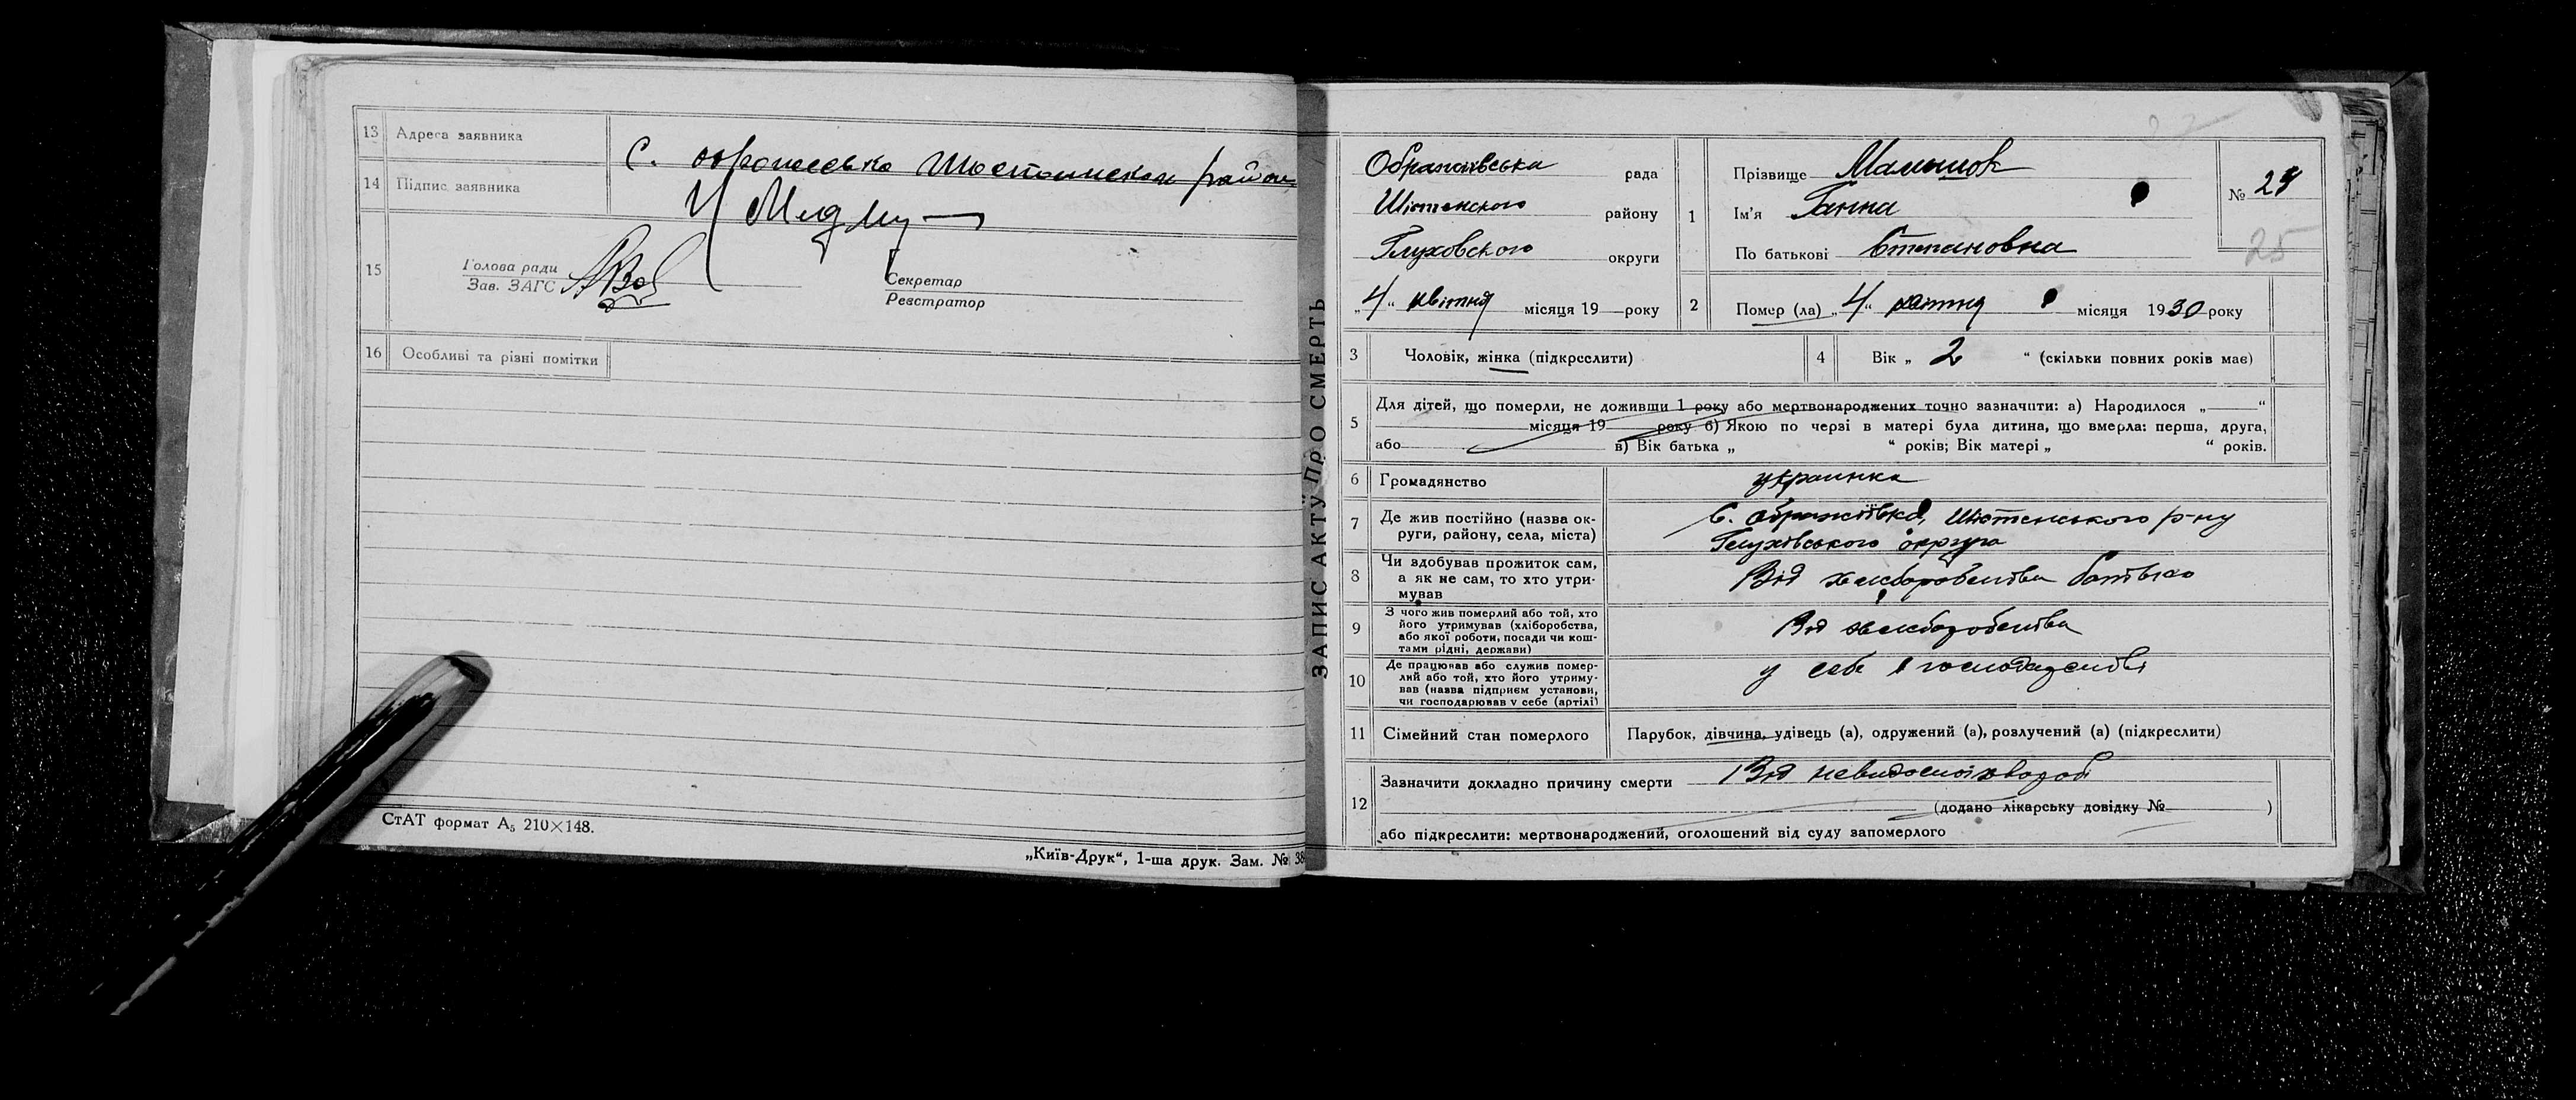 13 Адреса заявника С. Ображеевка Шостенского району
14 Підпис заявника
15 Голова ради
Зав. ЗАГС
Секретар
Реєстратор
16 Особливі та різні помітки
СтАТ формат А₅ 210×148.
„Київ-Друк“, 1-ша друк. Зам. № 38
ЗАПИС АКТУ ПРО СМЕРТЬ
Ображіївська рада
Шостенского району
Глуховского округи
„4“ квітня місяця 19 року
1 Прізвище
Ім'я Ганна
По батькові Степановна
№ 24
25
2 Помер (ла) „4“ квітня місяця 1930 року
3 Чоловік, жінка (підкреслити)
4 Вік „ 2 “ (скільки повних років має)
5 Для дітей, що померли, не доживши 1 року або мертвонароджених точно зазначити: а) Народилося „ “
місяця 19 року б) Якою по черзі в матері була дитина, що вмерла: перша, друга,
або в) Вік батька „ “ років; Вік матері „ “ років.
6 Громадянство украинка
7 Де жив постійно (назва ок-
руги, району, села, міста)
С. Ображіївка, Шостенського р-ну
Глухівського округа
8 Чи здобував прожиток сам,
а як не сам, то хто утри-
мував
Від хліборобства батько
9 З чого жив померлий або той, хто
його утримував (хліборобства,
або якої роботи, посади чи кош-
тами рідні, держави)
Від хліборобства
10 Де працював або служив помер-
лий або той, хто його утриму-
вав (назва підприєм установи,
чи господарював у себе (артілі)
у себе в господарстві
11 Сімейний стан померлого Парубок, дівчина, удівець (а), одружений (а), розлучений (а) (підкреслити)
12 Зазначити докладно причину смерти Від невидомоі хвороби
(додано лікарську довідку № )
або підкреслити: мертвонароджений, оголошений від суду запомерлого